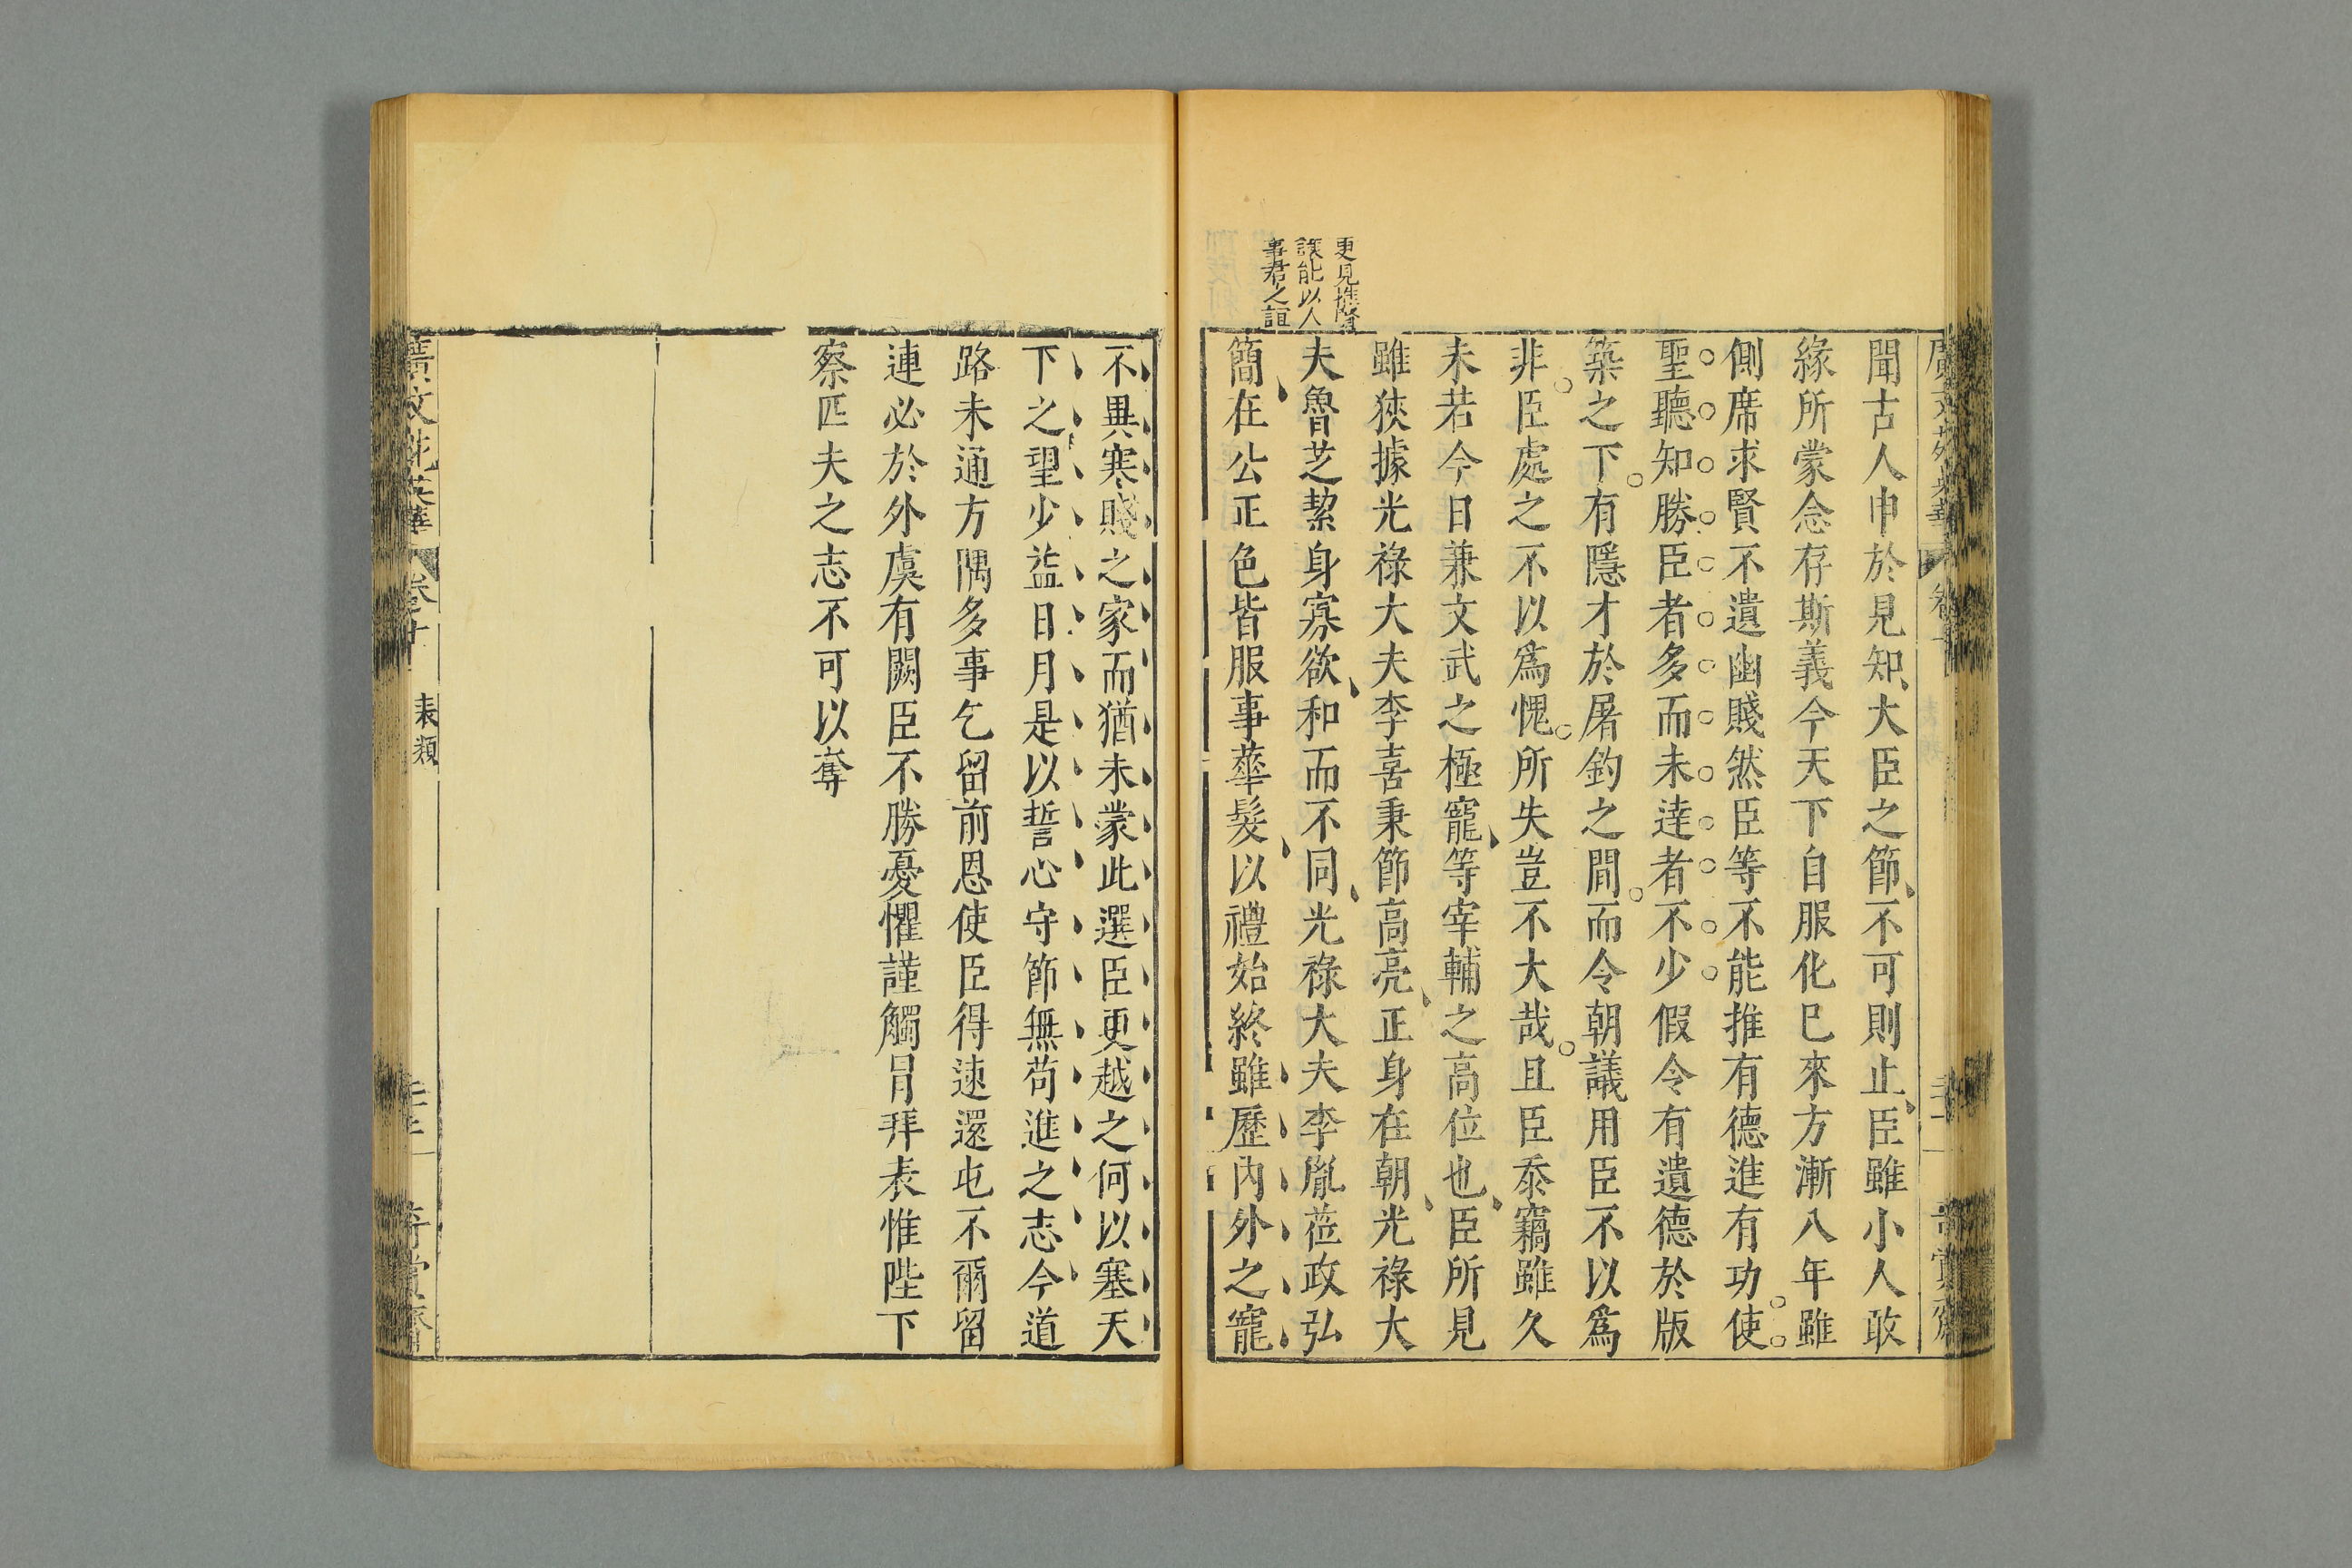 聞古人申於見知大臣之節不可則止臣雖小人敢
緣所蒙念存斯義今天下自服化已來方漸八年雖
側席求賢不遺幽賤然臣等不能推有德進有功使
聖聽知勝臣者多而未逹者不少假令有遺德於版
築之下有隱才於屠釣之間而令朝議用臣不以爲
非臣處之不以爲愧所失豈不大哉且臣忝竊雖久
未若今日兼文武之極寵等宰輔之高位也臣所見
雖狹據光祿大夫李喜秉節高亮正身在朝光祿大
夫魯芝絜身寡欲和而不同光祿大夫李胤莅政弘
簡在公正色皆服事華髮以禮始終雖歷內外之寵
更見推賢
讓能以人
事君之誼
不異寒賤之家而猶未蒙此選臣更越之何以塞天
下之望少益日月是以誓心守節無苟進之志今道
路未通方隅多事乞留前恩使臣得速還屯不爾留
連必於外虞有闕臣不勝憂懼謹觸冒拜表惟陛下
察匹夫之志不可以奪
廣文苑英華
表類
奇賞齋